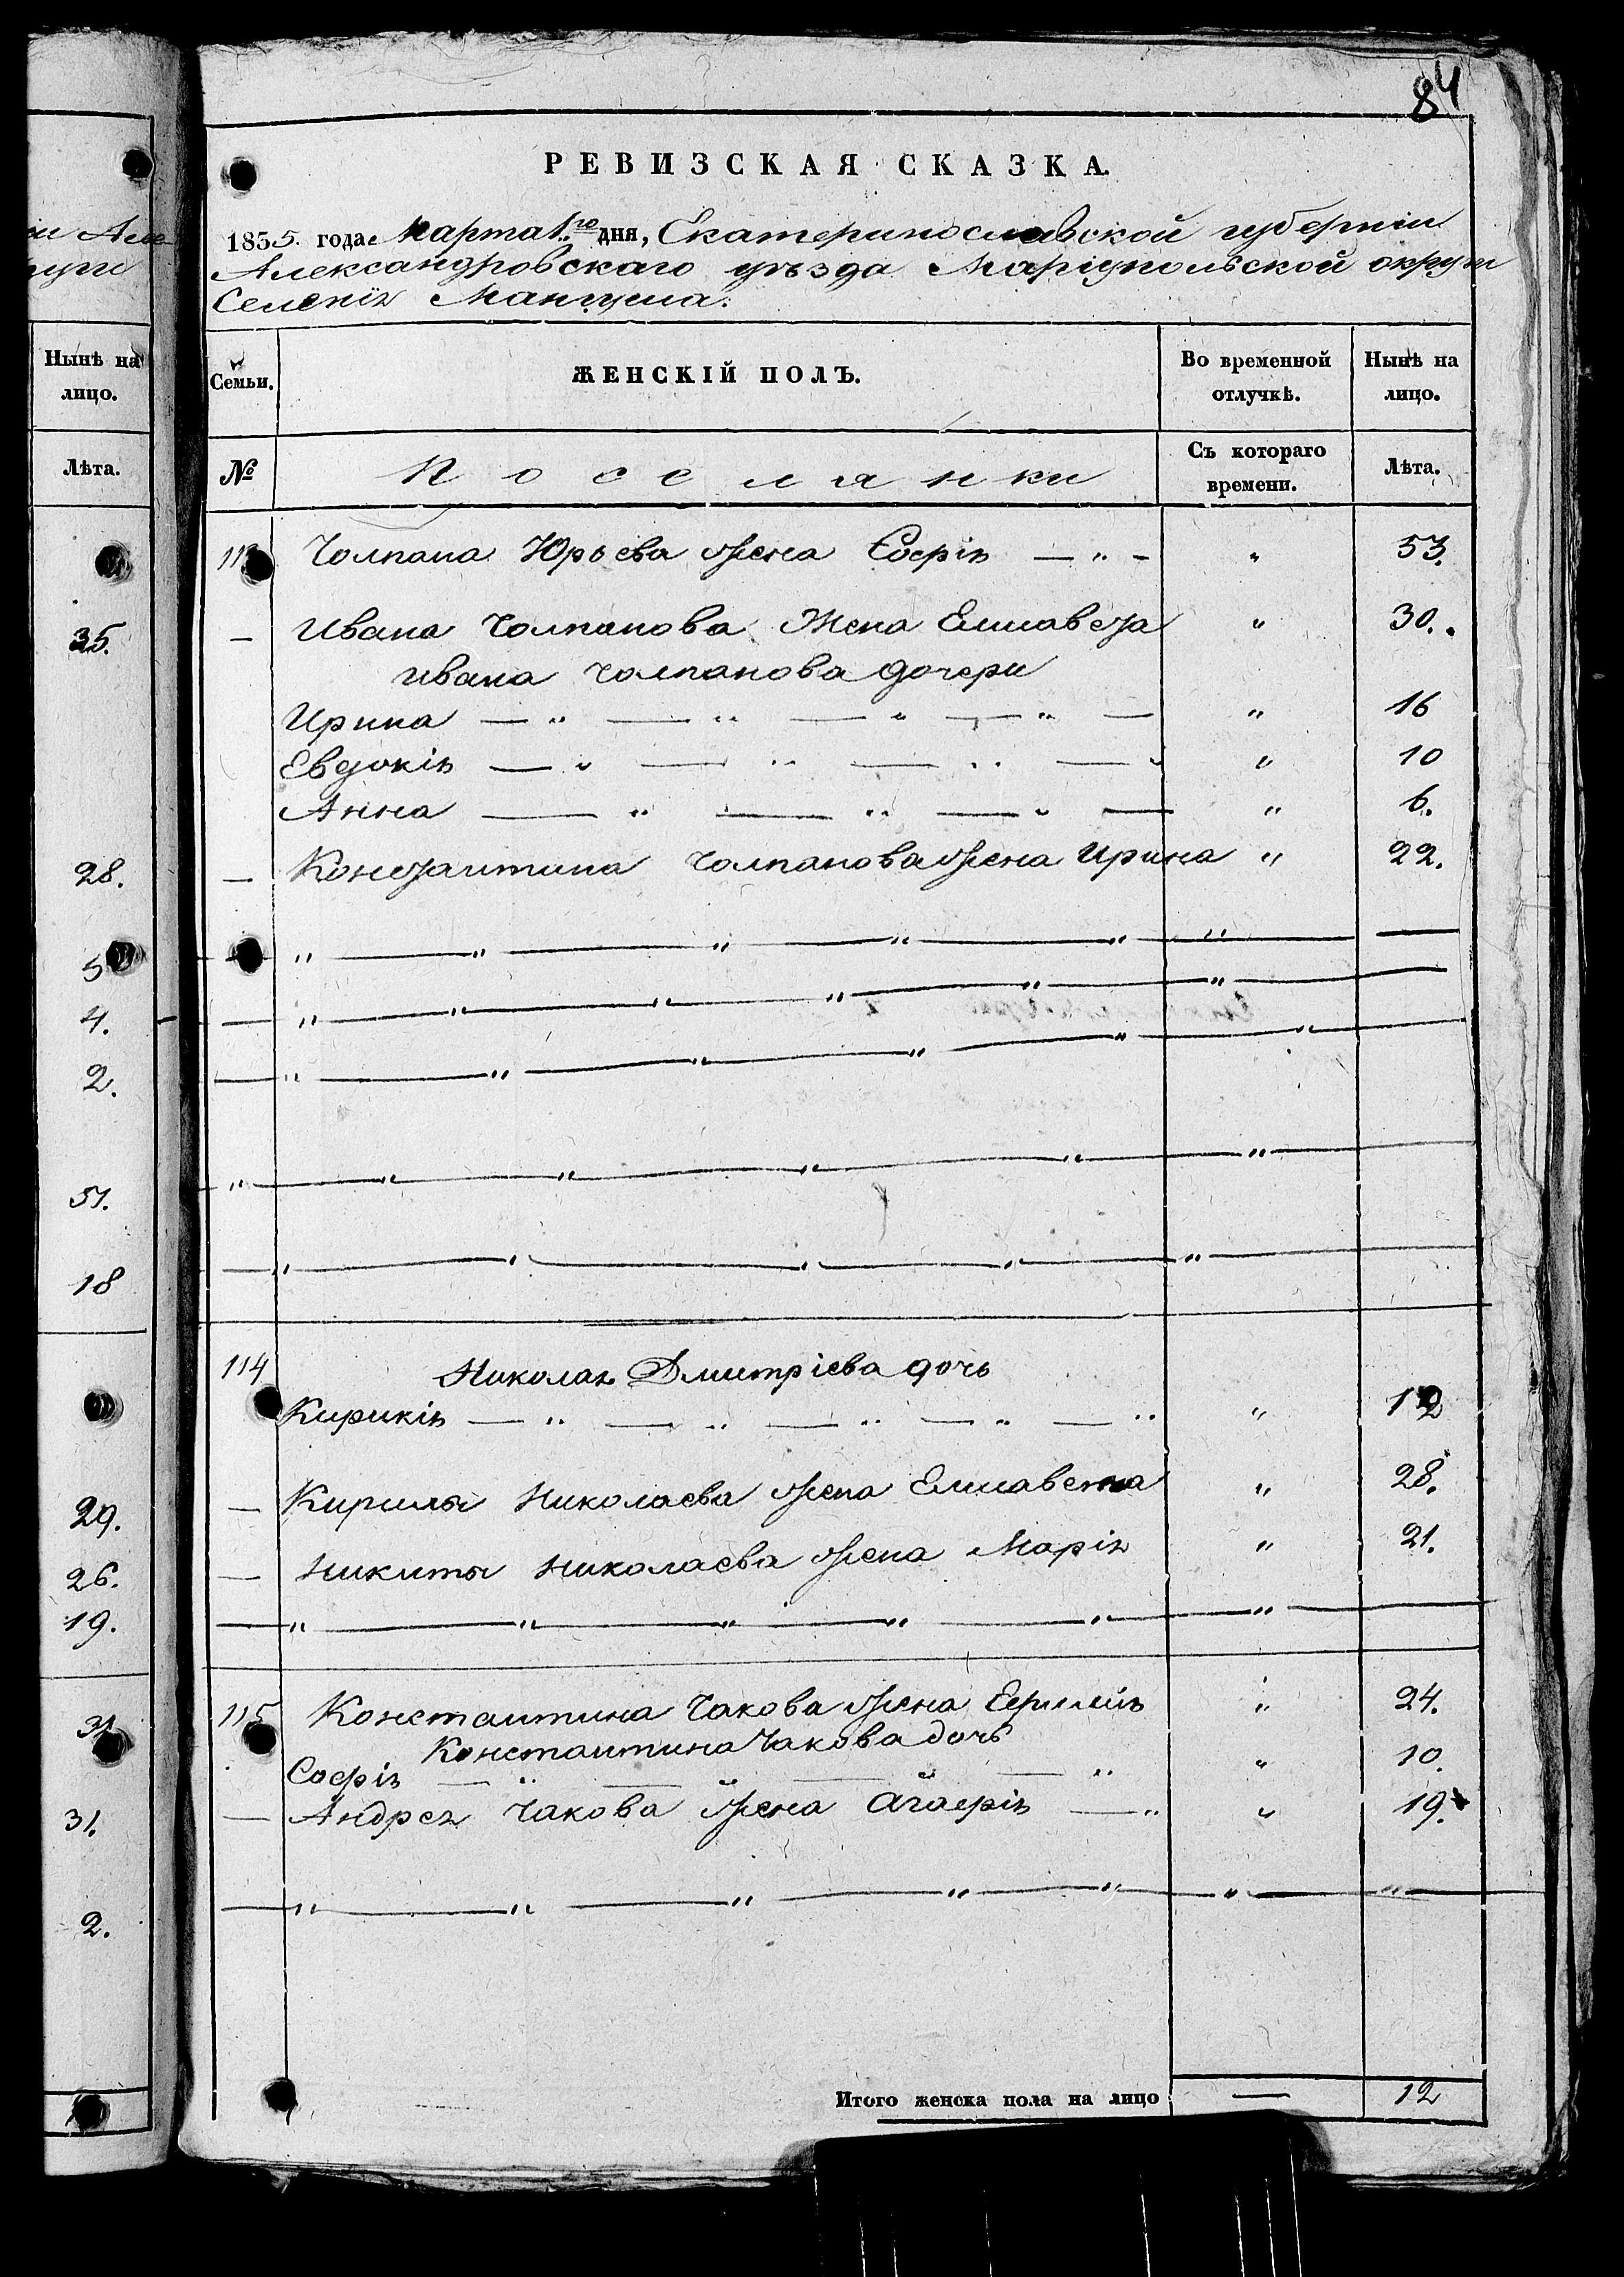 84
РЕВИЗСКАЯ СКАЗКА.
1835. года Марта 1го дня, Екатеринославской губерніи
Александровскаго уѣзда Маріупольской округи
Селенія Мангуша.
Семьи. ЖЕНСКІЙ ПОЛЪ. Во временной отлучкѣ. Нынѣ на лицо.
№ Посселянки Съ котораго времени. Лѣта.
Чолпана Юрьева жена Софія — „ - „ 53.
— Ивана Чолпанова Жена Елисавета „ 30.
Ивана Чолпанова дочери
Ирина — „ — „ — „ — „ — „ 16
Евдокія — „ — „ — „ — „ „ 10
Анна — „ — „ — „ — „ 6.
— Константина Чолпанова жена Ирина „ 22.
114 Николая Дмитріева дочь
Кирикія — „ — „ — „ — „ — „ „ 12
— Кирилы Николаева жена Елисавета „ 28.
— Никиты Николаева жена Марія „ 21.
115 Константина Чакова жена „ 24.
Константина Чакова дочь
Софія — „ — „ — „ — „ „ 10.
— Андрея Чакова жена Агафія — „ „ 19.
Итого женска пола на лицо — 12
Нынѣ на лицо.
Лѣта.
35.
28.
5
4.
2.
51.
18
29.
26.
19.
31
31.
2.